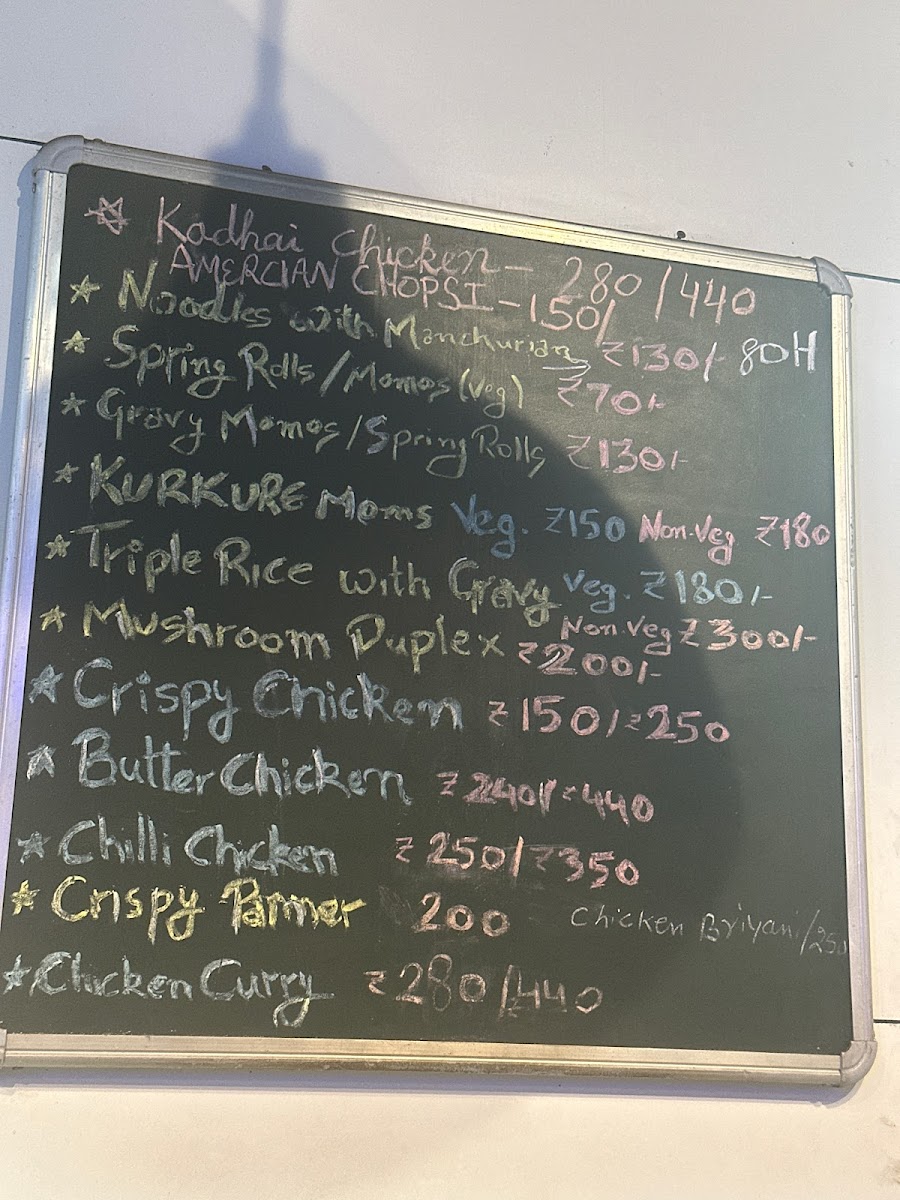 ☆ Kadhai Chicken - 280/440
AMERCIAN CHOPSI - 150/
★ Noodles with Manchurian ₹130/- 80H
★ Spring Rolls/Momos (Veg) ₹70/-
★ Gravy Momos/Spring Rolls ₹130/-
★ KURKURE Moms Veg. ₹150 Non-Veg ₹180
★ Triple Rice with Gravy Veg. ₹180/-
Non-Veg ₹300/-
★ Mushroom Duplex ₹200/-
★ Crispy Chicken ₹150/₹250
★ Butter Chicken ₹240/₹440
★ Chilli Chicken ₹250/₹350
★ Crispy Panner 200
Chicken Briyani/250
★ Chicken Curry ₹280/440